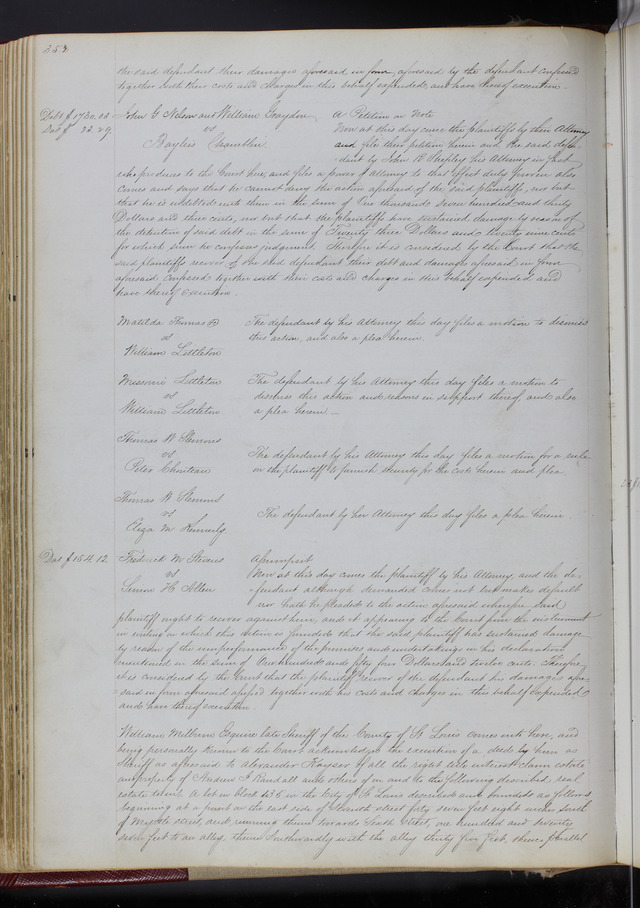 the said defendant their damages aforesaid in form aforesaid by the defendant confessed
together with their costs and charges in this behalf expended, and have thereof execution.
Debt $1730.03 John G Nelson and William Graydon A Petition in Note
Dam $ 23.29 vs Now at this day come the plaintiffs by their Attorney
Bayless Chandler and file their petition herein and the said defen-
dant by John R Shepley his Attorney in fact
who produces to the Court here, and files a power of attorney to that effect duly proven also
comes and says that he cannot deny the action aforesaid of the said plaintiffs, nor but
that he is indebted unto them in the sum of One thousand Seven hundred and thirty
Dollars and three cents, nor but that the plaintiffs have sustained damage by reason of
the detention of said debt in the sum of Twenty three Dollars and twenty nine cents
for which sum he confesses judgment. Therefore it is considered by the Court that the
said plaintiffs recover of the said defendant their debt and damages aforesaid in form
aforesaid confessed together with their costs and charges in this behalf expended and
have thereof execution.
Matilda Thomas The defendant by his Attorney this day files a motion to dismiss
vs this action, and also a plea herein.
William Littleton
Missouri Littleton The defendant by his Attorney this day files a motion to
vs dismiss this action and reasons in support thereof, and also
William Littleton a plea herein.
Thomas W Stemmons
vs The defendant by his Attorney this day files a motion for a rule
Peter Chouteau on the plaintiff to furnish security for the costs herein and plea.
Thomas W Stemmons
vs The defendant by her Attorney this day files a plea herein.
Eliza M Kennerly.
Dam $154.12. Frederick M Stevens Assumpsit
vs Now at this day comes the plaintiff by his Attorney, and the de-
H Allen fendant although demanded comes not but makes default
nor hath he pleaded to the action aforesaid wherefore said
plaintiff ought to recover against him, and it appearing to the Court from the instrument
in writing on which this action is founded that the said plaintiff has sustained damage
by reason of the nonperformance of the promises and undertakings in his declaration
mentioned in the sum of One hundred and fifty four Dollars and twelve cents. Therefore
it is considered by the Court that the plaintiff recover of the defendant his damages afore-
said in form aforesaid assessed together with his costs and charges in this behalf expended
and have thereof execution.
William Milburn Esquire late Sheriff of the County of St Louis comes into here, and
being personally known to the Court acknowledges the execution of a deed by him as
Sheriff as aforesaid to Alexander Kayser of all the right title interest claim estate
and property of Andrew J Rindall and others of in and to the following described real
estate to wit. A lot in block in the City of St Louis described and bounded as follows
beginning at a point on the east side of street fifty seven feet eight inches south
of Myrtle street, and running thence towards street, one hundred and twenty
seven feet to an alley, thence Southwardly with the alley thirty five feet, thence parallel